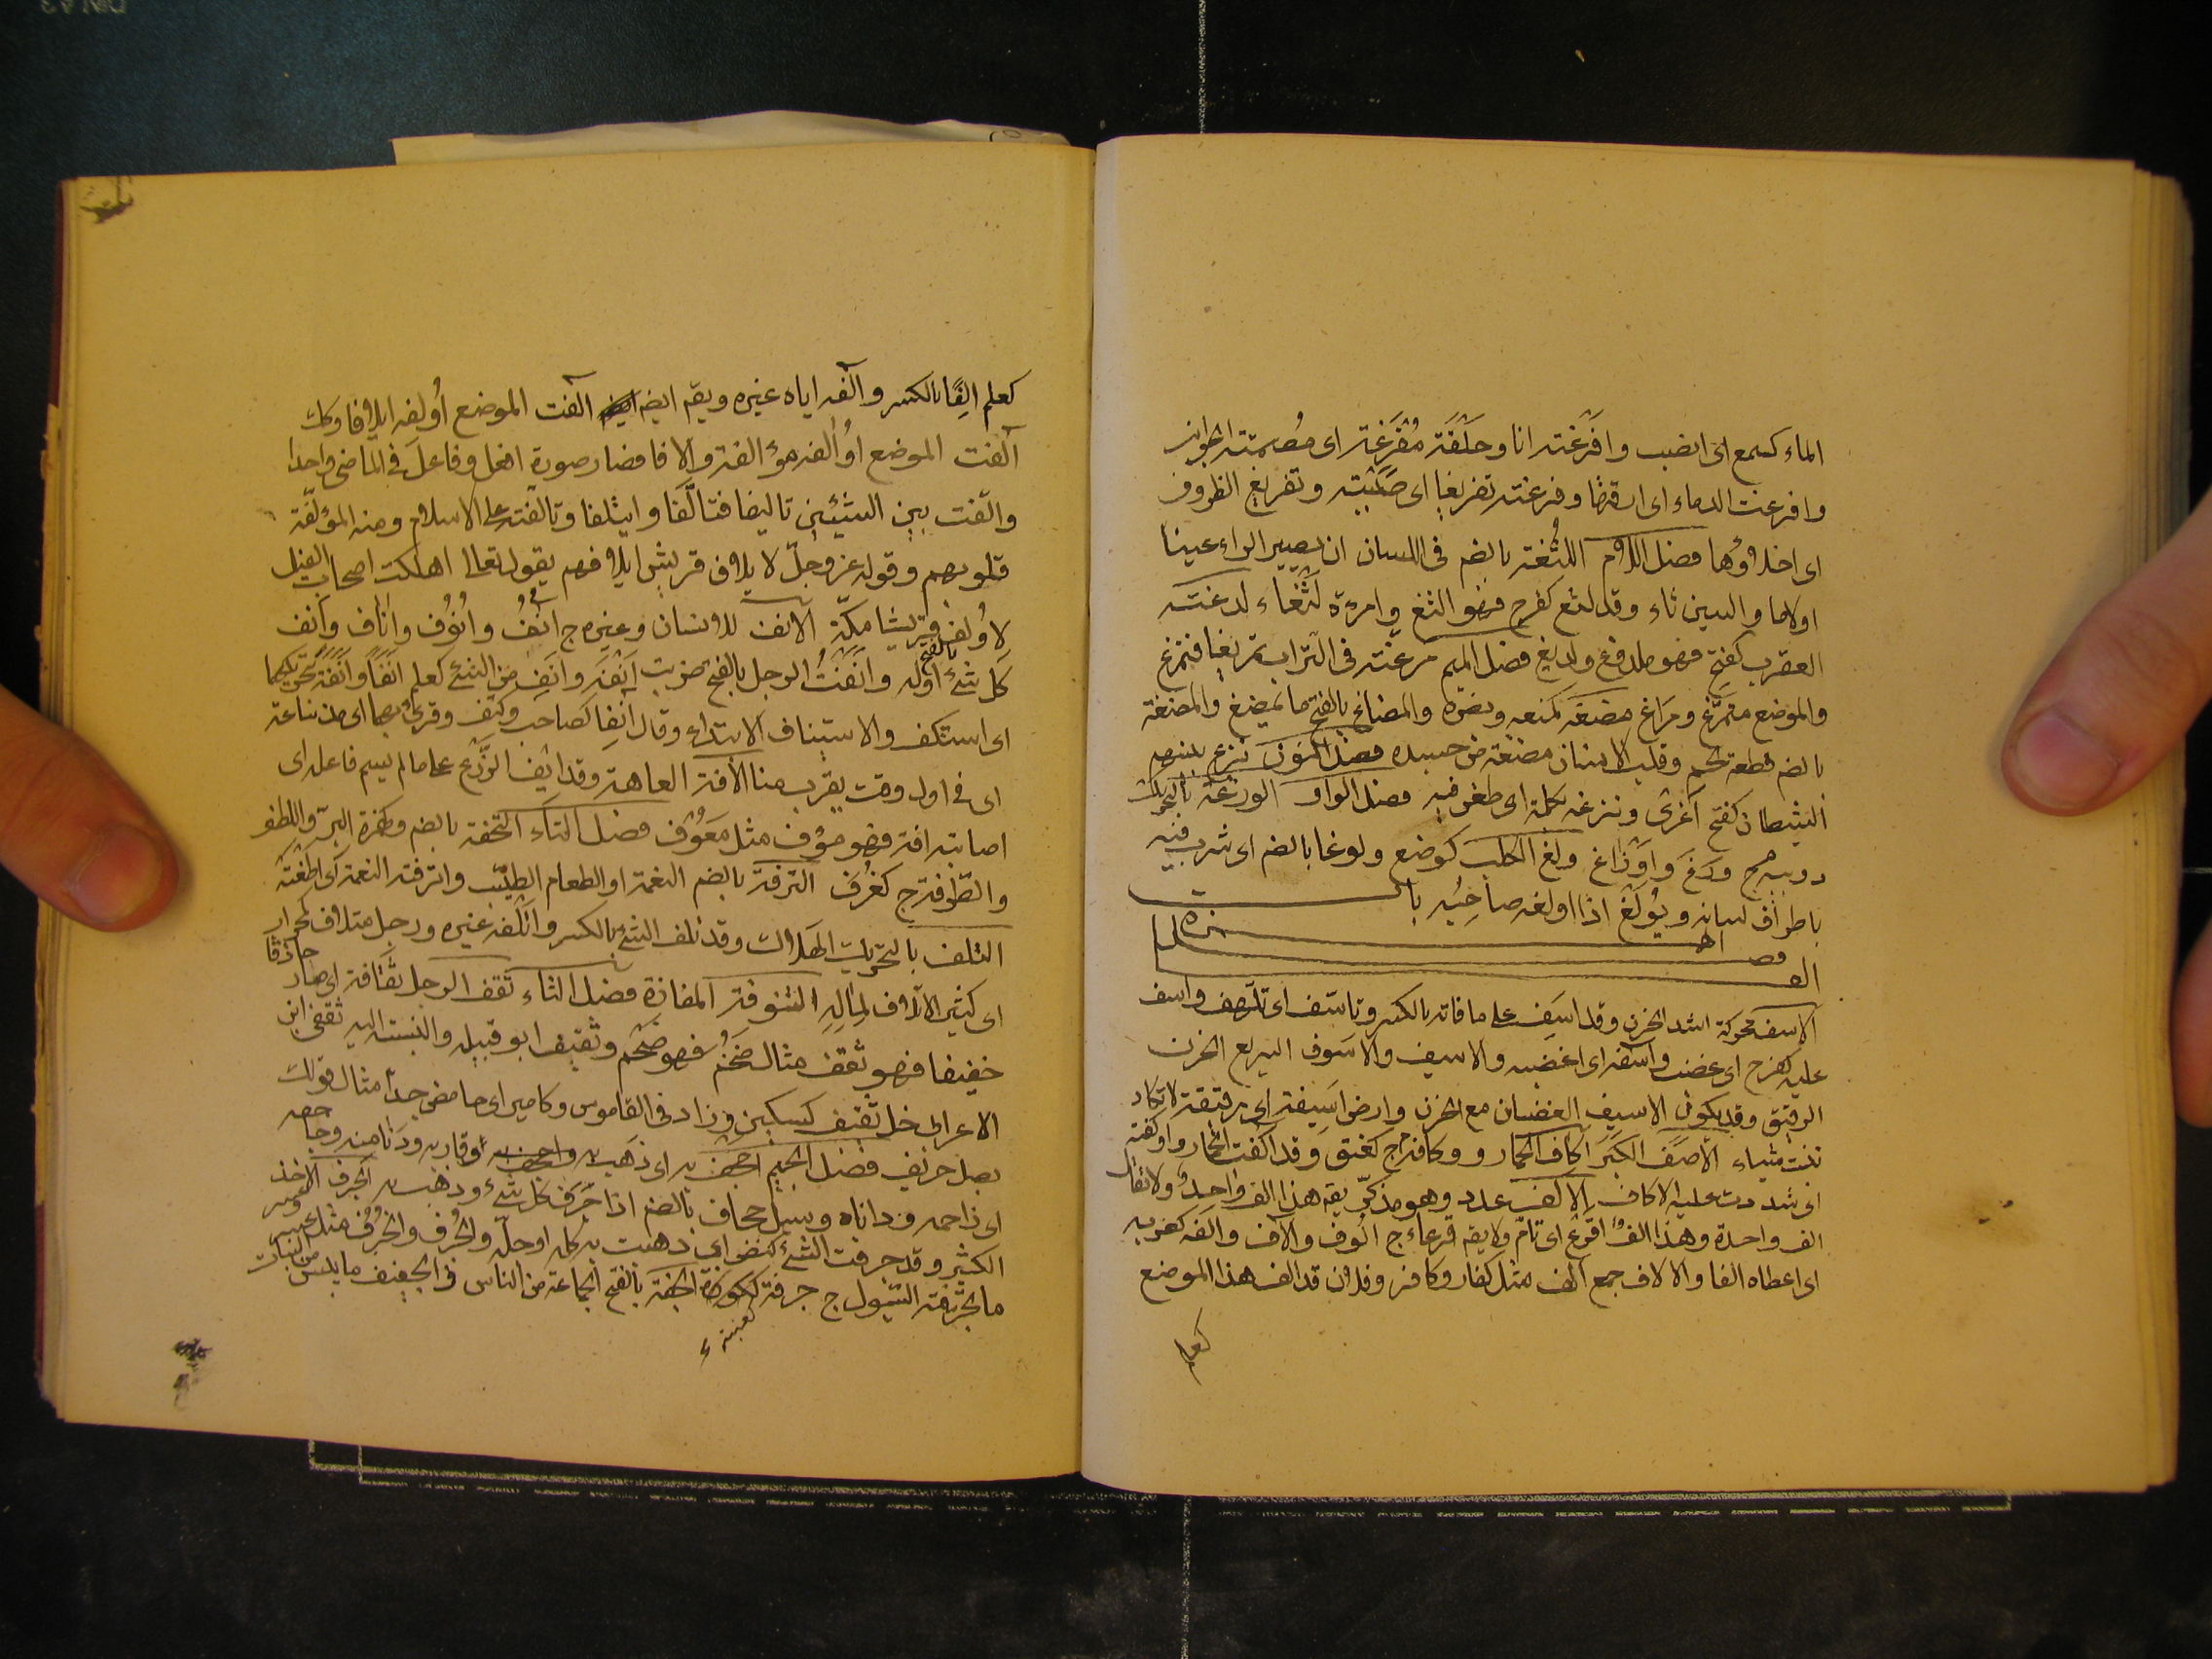 الماء كسمع اى انصب وافرغته انا وحلقة مُفرَغة اى مصمتة الجوانب
وافرغت الدماء اى ارقتها وفرغته تفريغا اى صَبَبْته وتفريغ الظروف
اى اخلاؤها فصل اللام اللُثغة بالضم فى اللسان ان يصير الراء غينا
اولاما والسين ثاء وقد لثغ كفرح فهو الثغ وامرءة لَثغاء لدغته
العقرب كفتح فهو ملدوغ ولديغ فصل الميم مرغته فى التراب تمريغا فتمرغ
والموضع متمرَّغ ومَرَاغ مضغه كمنعه ونصره والمضاغ بالفتح ما يمضغ والمضغة
بالضم قطعة لحم وقلب الانسان مضغة من جسده فصل النون نزغ بينهم
الشيطان كفتح اغرى ونزغه بكلمة اى طعن فيه فصل الواو الوزغة بالتحريك
دويبة ج وَزَغ واوْزَاغ ولغ الكلب كوضع ولوغا بالضم اى شرب فيه
باطراف لسانه ويُولَغ اذا اولغه صاحبُه باب
الفاء فصل الهمزة
الاسف محركة اشد الحزن وقد اسَِف على ما فاته بالكسر وتاسّف اى تلهف واسف
عليه كفرح اى غضب وآسفه اى اغضبه والاسيف والاسوف السريع الحزن
الرقيق وقد يكون الاسيف الغضبان مع الحزن وارض اَسِيفة اى رقيقة لا تكاد
تنبت شياء الاَصَف الكَبَرَ اكاف الحمار ووكافه ج كعنق وقد آكفت الحمار واوكفته
اى شددت عليه الاكاف الالف عدد وهو مذكّر يقه هذا الف واحدٌ ولا تقل
الف واحدة وهذا الفٌ اقرعُ اى تامّ ولا يقه قرعاء ج اُلوف وآلاف والفه كضربه
اى اعطاه الفا والالاف جمع آلف مثل كفار وكافر وفلان قد الف هذا الموضع
كعلم
كعلم اِلِفًا بالكسر وآلفه اياه غيره ويقه ايضه آلفت الموضع اُولفه ايلافا وكك
آلفت الموضع اُوالفه مؤالفة والافا فصار صورة افعل وفاعلَ فى الماضى واحدا
والّفت بين الشيئين تاليفا فتالّفا وايتلفا وتالفته على الاسلام ومنه المؤلّفة
قلوبهم وقوله عز وجلّ لايلاف قريش ايلافهم يقول تعالى اهلكت اصحاب الفيل
لاُولف قريشا مكّة الانف للانسان وغيره ج انُفٌ واُنُوُف واٰنَاف وانف
كل شئ اوّله وانَفْتُ الرجل بالفتح ضربت اَنْفَه وانِف من الشئ كعلم اَنَفًا واَنَفَةً بتحريكهما
اى استنكف والاستيناف الابتداء وقال آنِفا كصاحب وكتف وقرئ بهما اى مذ ساعة
اى فى اول وقت يقرب منا الافة العاهة وقد ايف الزَّرع على ما لم يسم فاعله اى
اصابته افة فهو مؤف مثل مَعُوْف فصل التاء التحفة بالضم وكهمزة البرّ واللطف
والطُرفة ج كغُرَف الترفة بالضم النعمة او الطعام الطيّب واترفته النعمة اى اطغته
التلف بالتحريك الهلاك وقد تلف الشئ بالكسر واتلفه غيره ورجل متلاف كمحراب
اى كثير الاتلاف لمِالِه التنوفة المفازة فصل الثاء ثقف الرجل ثقَافة اى صار حاذقا
خفيفا فهو ثقف مثال ضخُم فهو ضَخْم وثقيف ابو قبيلة والنسبة اليه ثقفى ابن
الاعرابى خل ثقيف كسكين وزاد فى القاموس وكامير اى حامض جدا مثال قولك
بصل حريف فصل الجيم اجحف به اى ذهب به واجحف به اى قاربه ودنا منه وجاحفه
اى زاحمه وداناه وسيل جحاف بالضم اذا جَرَف كل شئ وذهب به الجرف الاخذ
الكثير وقد جرفت الشئ كنصر اى ذهبت به كله او جلّه والجُرْف والجُرُف مثل عسْر وعسُر
ما تجرّفته السّيول ج جِرَفة ككِوَزة الجفّة بالفتح الجماعة من الناس فى الجفيف ما يبس من النبات